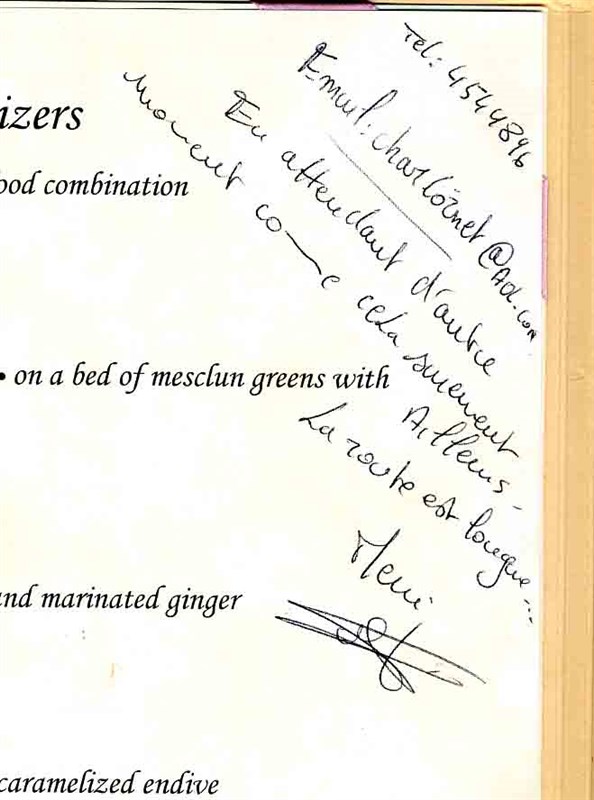 izers
ood combination
• on a bed of mesclun greens with
and marinated ginger
caramelized endive
Tel: 4544896
Email: @AOL.com
En attendant d'autre
moment comme cela surement
Ailleurs -
La route est longue...
Merci